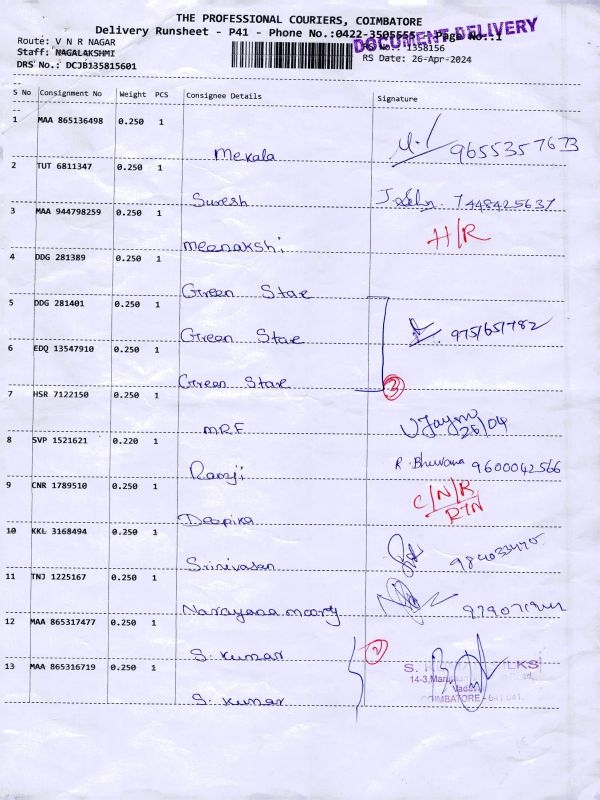 THE PROFESSIONAL COURIERS, COIMBATORE
Delivery Runsheet - P41 - Phone No.:0422-3505555 Page No.:1
DOCUMENT DELIVERY
Route: V N R NAGAR RS No.: 1358156
Staff: NAGALAKSHMI RS Date: 26-Apr-2024
DRS No.: DCJB135815601
S No Consignment No Weight PCS Consignee Details Signature
1 MAA 865136498 0.250 1
Mekala 9655357673
2 TUT 6811347 0.250 1
Suresh 7448425637
3 MAA 944798259 0.250 1
Meenakshi H/R
4 DDG 281389 0.250 1
Green Star
5 DDG 281401 0.250 1
Green Star 9751651782
6 EDQ 13547910 0.250 1
Green Star 3
7 HSR 7122150 0.250 1
MRF 26/04
8 SVP 1521621 0.220 1
Ramji R. Bhuvana 9600042566
9 CNR 1789510 0.250 1 C/N/R
Deepika RTN
10 KKL 3168494 0.250 1
Srinivasan
11 TNJ 1225167 0.250 1
Narayana moorty
12 MAA 865317477 0.250 1
S. Kumar 2
13 MAA 865316719 0.250 1
S. Kumar
COIMBATORE - 641 041.